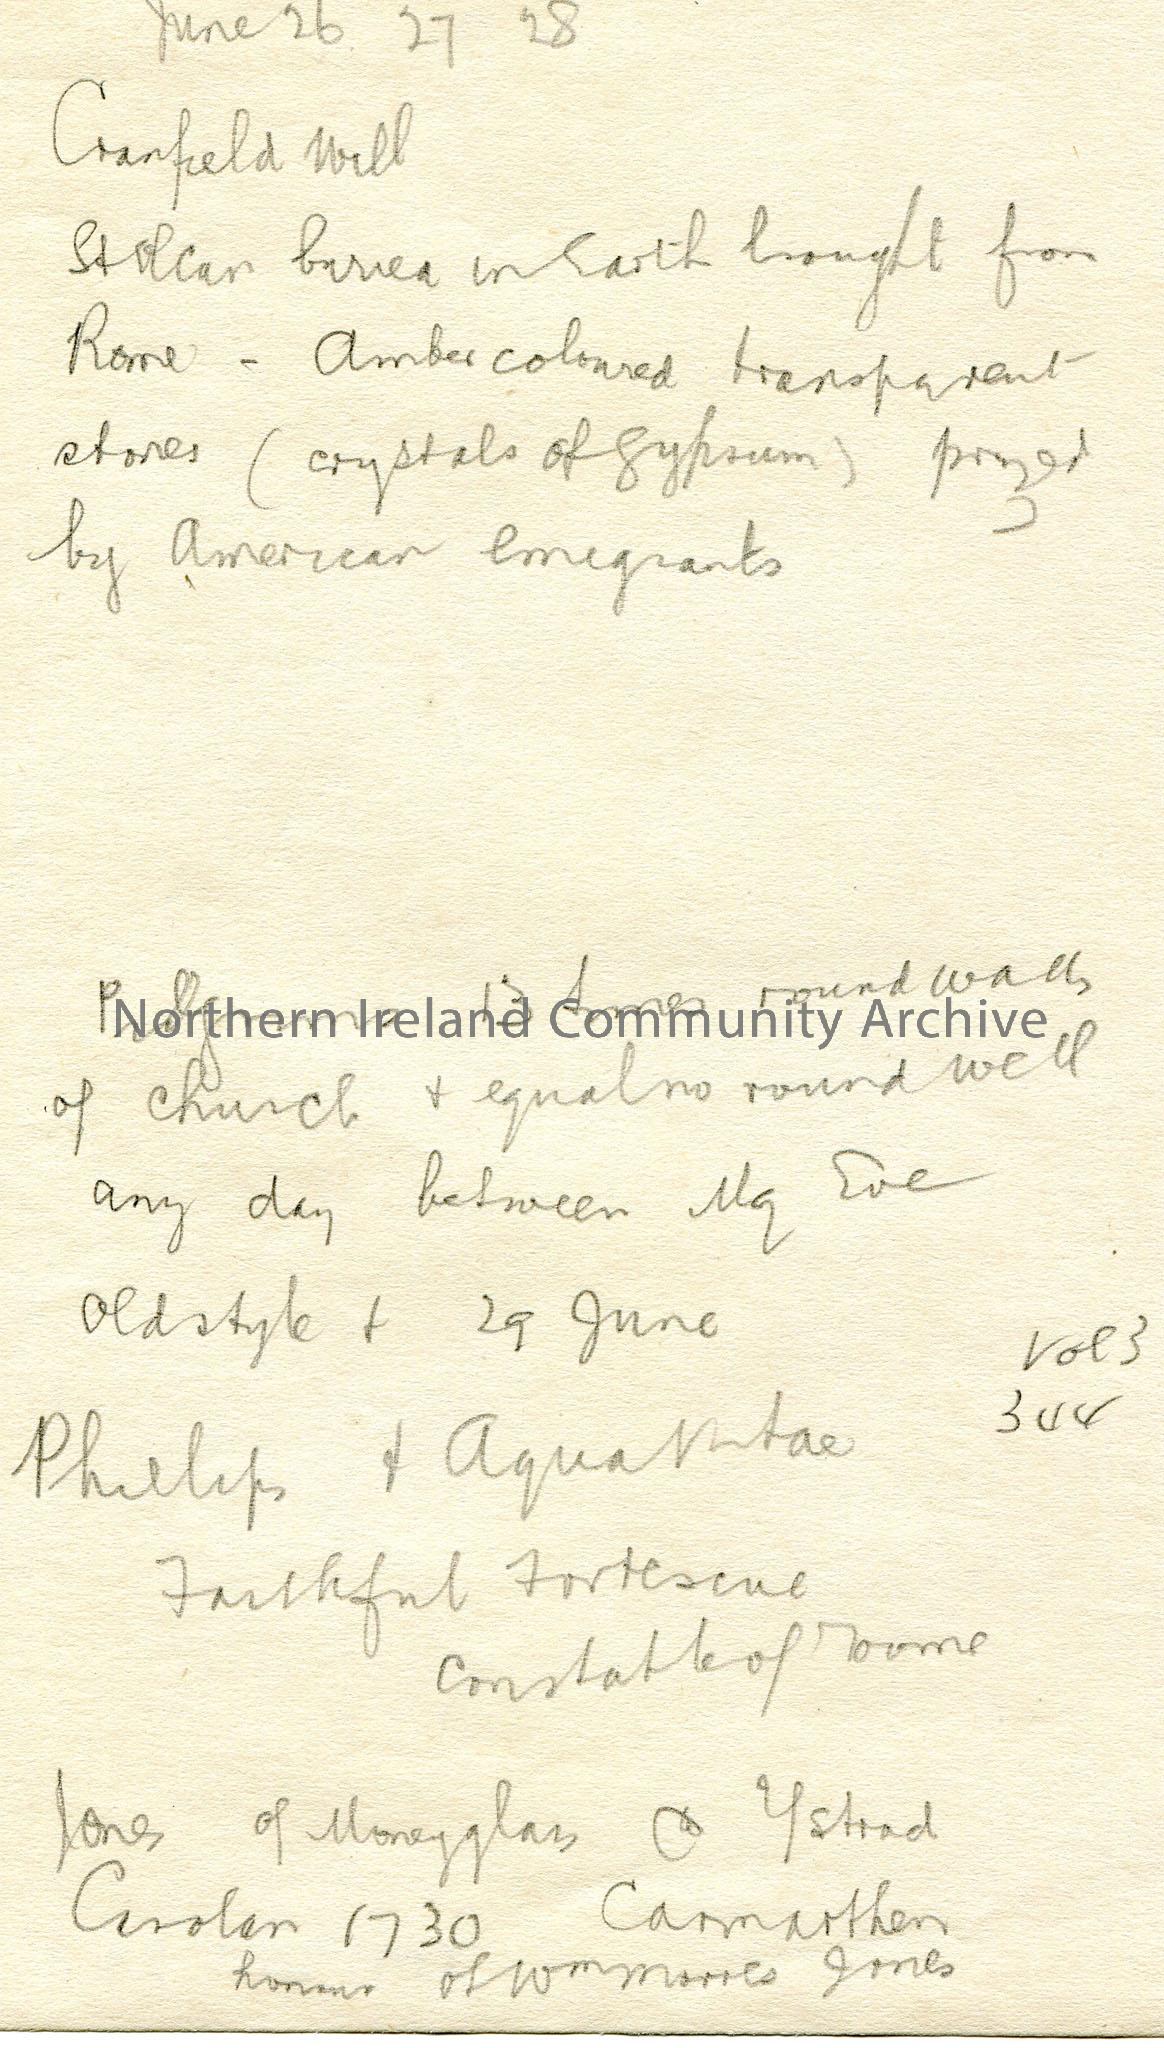 June 26 27 28
Cranfield Well
St Olcan buried in Earth brought from
Rome - Amber coloured transparent
stones (crystals of gypsum) prized
by American emigrants
13 times round walls
Northern Ireland Community Archive
of church + equal no round well
any day between May Eve
Old style + 29 June
Vol 3
344
Phillips + Aqua Vitae
Faithful Fortescue
Constable of Toome
Jones of Moneyglass & Ystrad
Carolan 1730 Carmarthen
honour of Wm Morres Jones